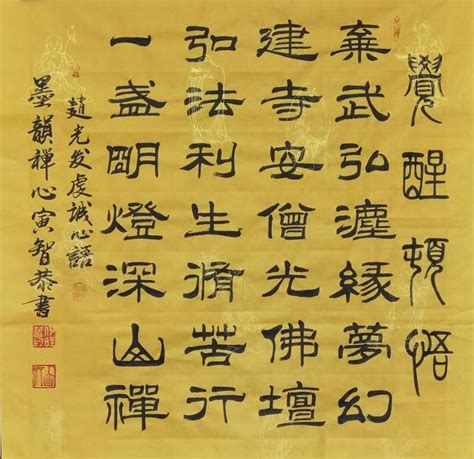 覺醒頓悟
棄武弘緣夢幻
建寺安僧光佛壇
弘法利生脩苦行
一盏眀燈深山禪
趙光发虔誠心語
墨韻禅心寅智恭書